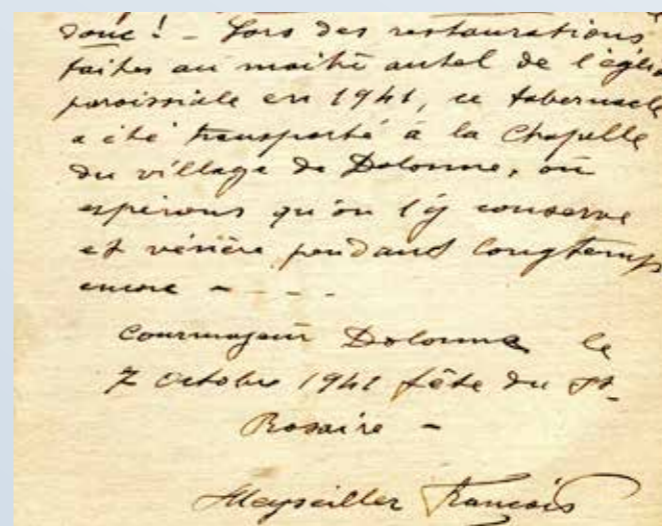 donc ! - Lors des restaurations
faites au maitre autel de l'église
paroissiale en 1941, ce tabernacle
a été transporté à la Chapelle
du village de Dolonne, où
espérons qu'on l'y conserve
et vénère pendant longtemps
encore - - - -
Courmayeur Dolonne le
7 octobre 1941 fête du St
Rosaire -
Meyseiller François